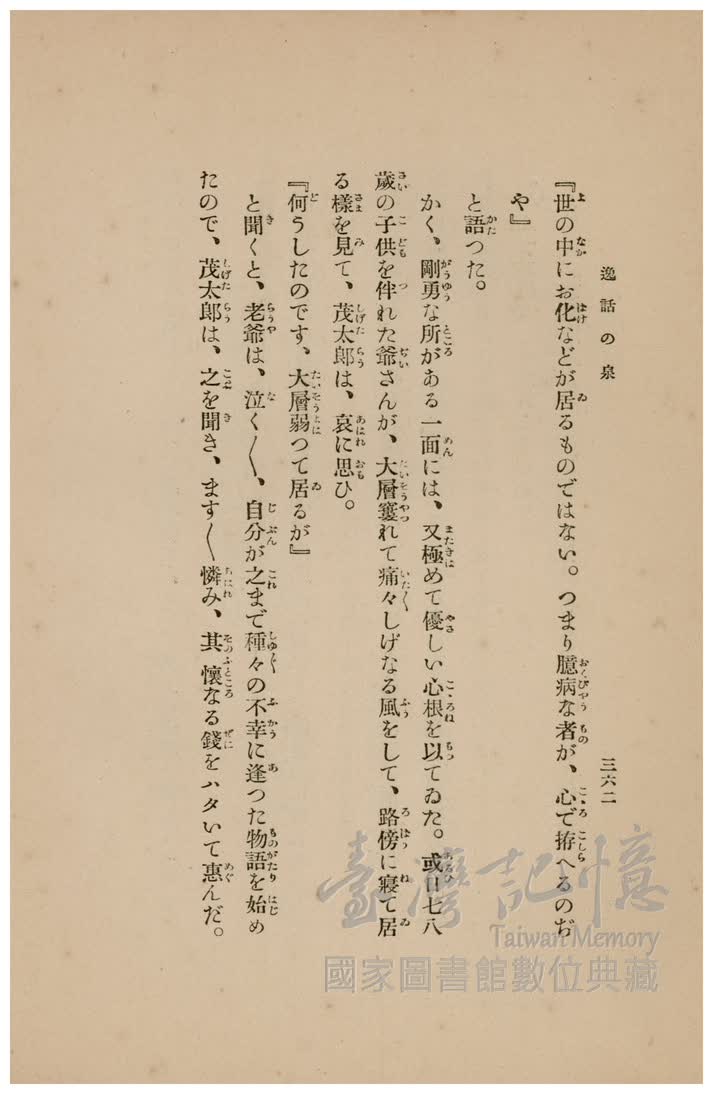 逸話の泉
三六二
『世の中にお化などが居るものではない。つまり臆病な者が、心で拵へるのぢ
や』
と語つた。
かく、剛勇な所がある一面には、又極めて優しい心根を以てゐた。或日七八
歲の子供を伴れた爺さんが、大層窶れて痛々しげなる風をして、路傍に寢て居
る樣を見て、茂太郎は、哀に思ひ。
『何うしたのです、大層弱つて居るが』
と聞くと、老爺は、泣く〳〵、自分が之まで種々の不幸に逢つた物語を始め
たので、茂太郎は、之を聞き、ます〳〵憐み、其懷なる錢をハタいて惠んだ。
臺灣記憶
Taiwan Memory
國家圖書館數位典藏